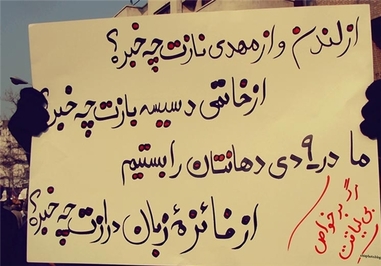 از لندن و از مهدی نازت چه خبر؟
از خاتمی دسیسه بازت چه خبر؟
ما در ۹ دی دهانتان را بستیم
از فائزهٔ زبان درازت چه خبر؟
مرگ بر خواص
بی لیاقت